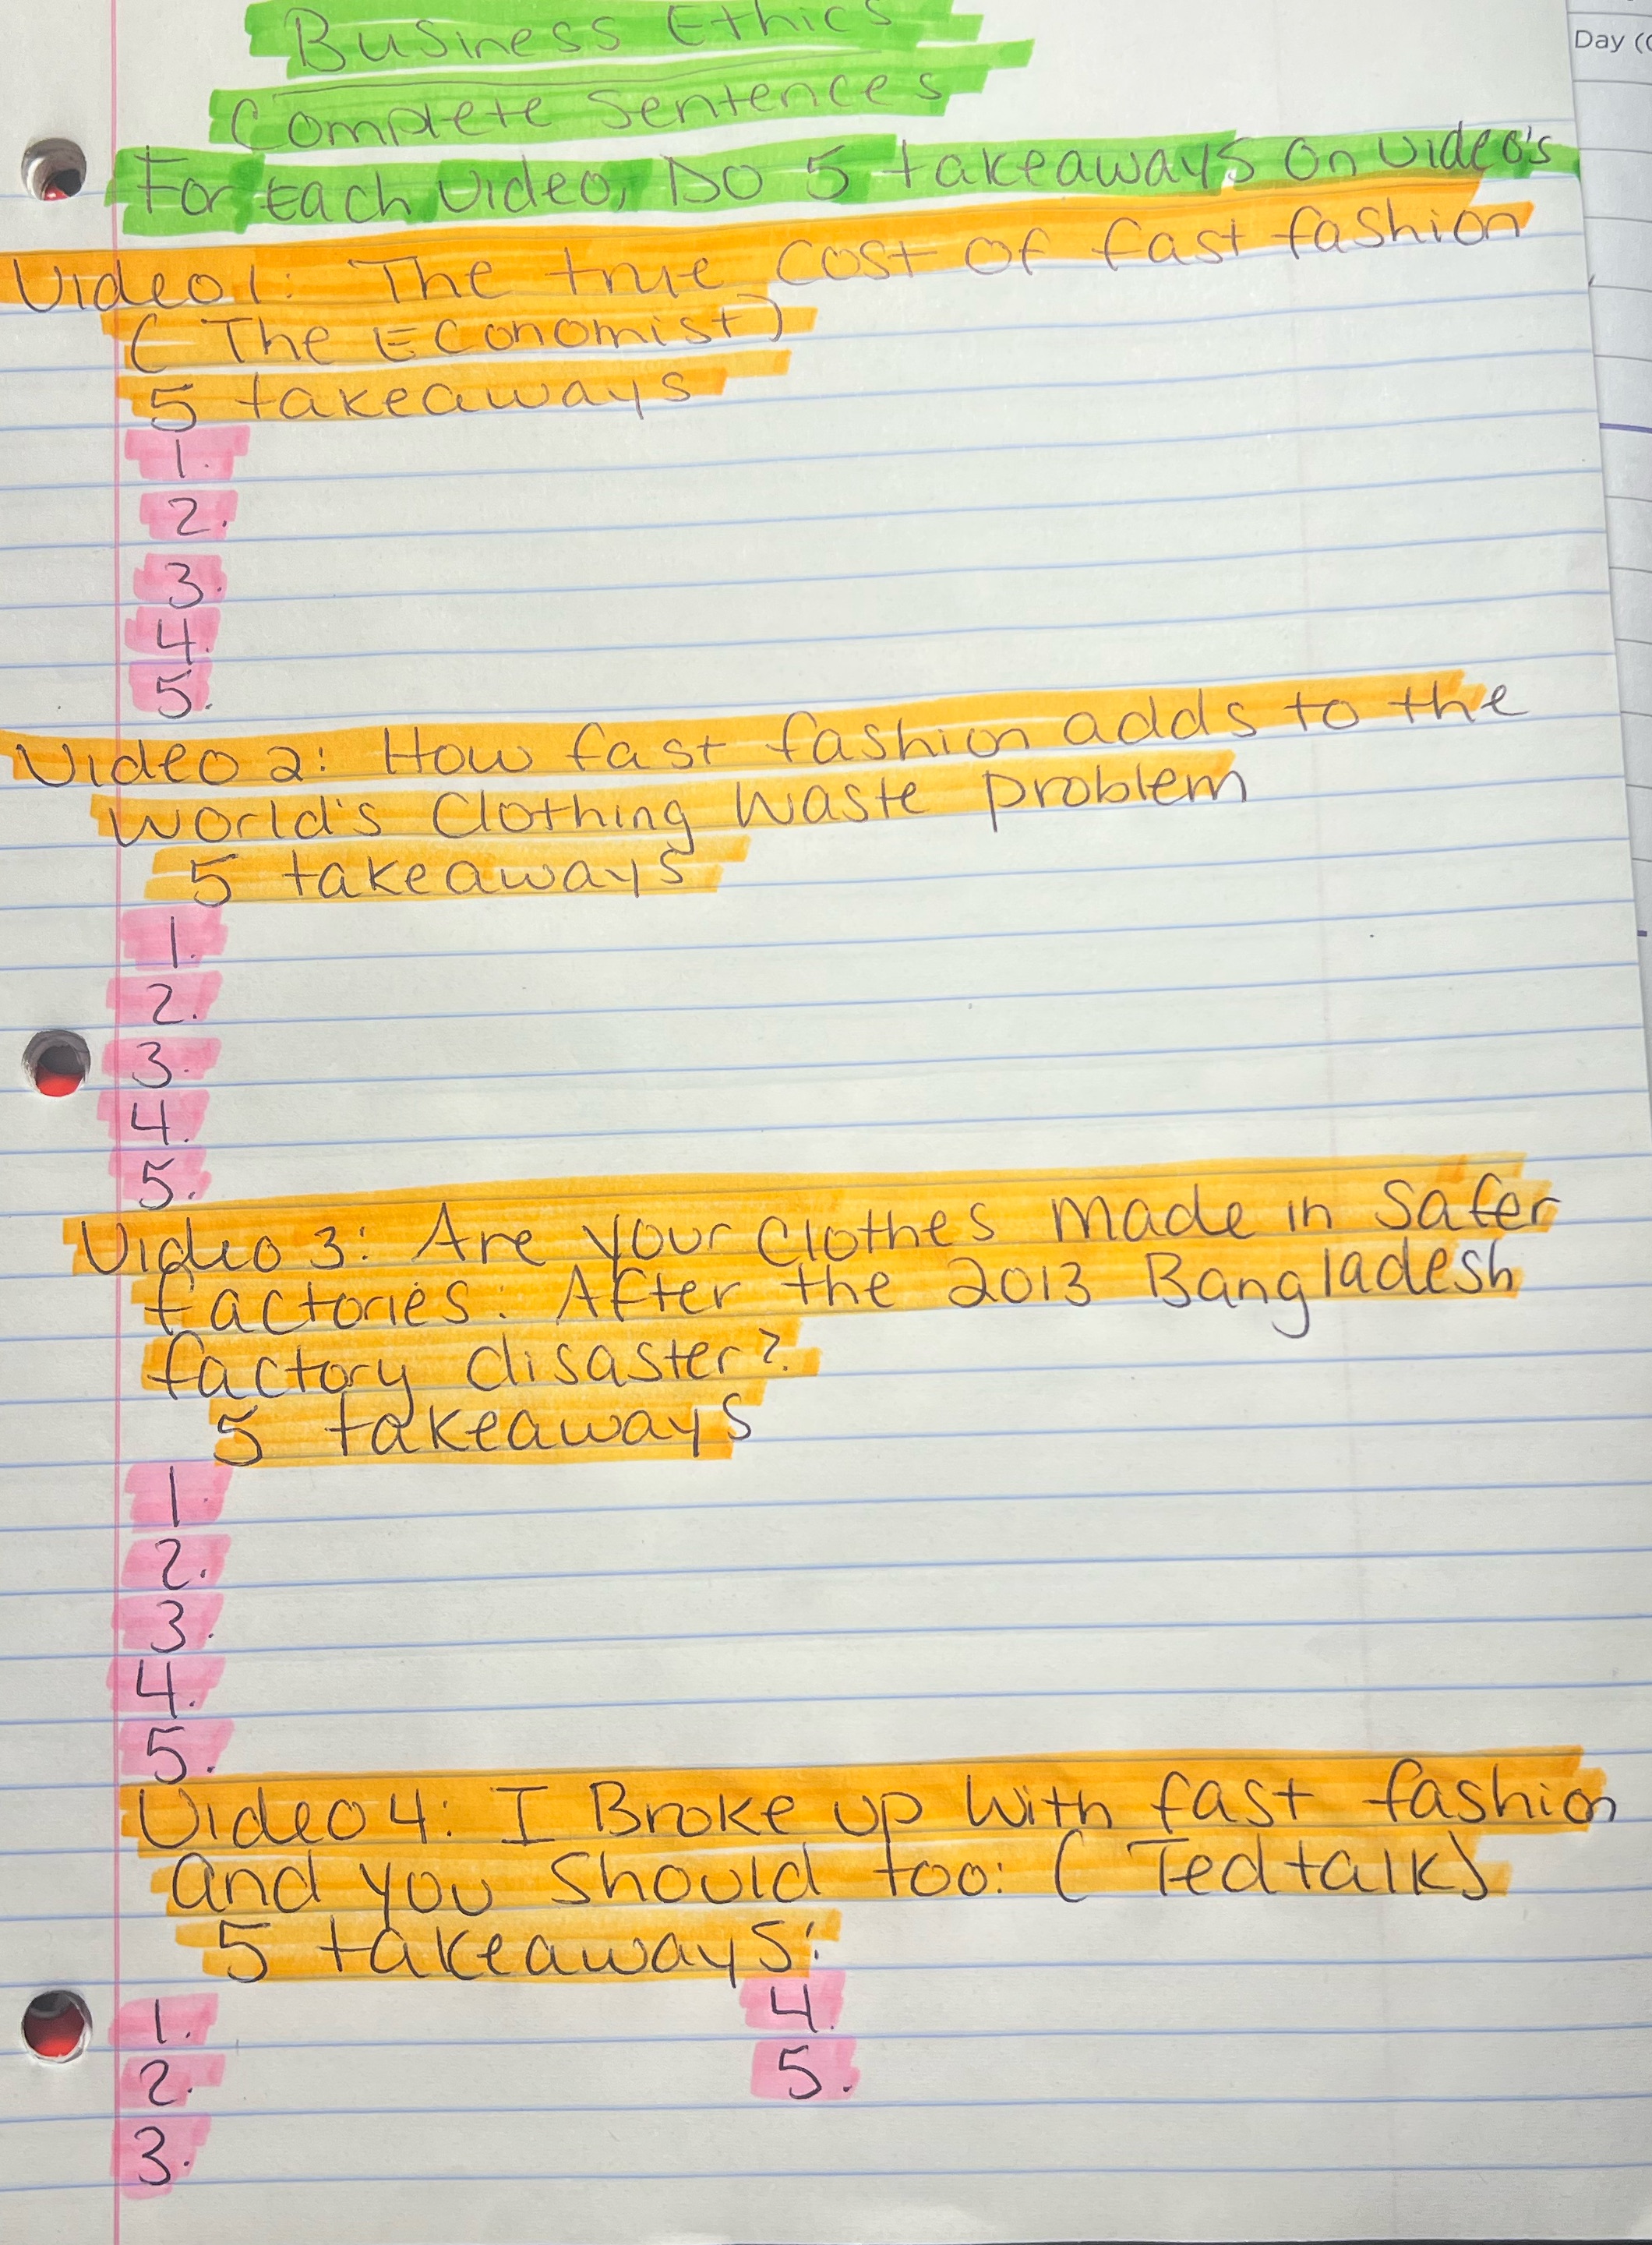 Business Ethics
Day (
Complete Sentences
For Each Video, Do 5 takeaways on video's
Video 1: The true cost of fast fashion
( The Economist)
5 takeaways
1.
2.
3.
4.
5.
Video 2: How fast fashion adds to the
world's Clothing Waste problem
5 takeaways
1.
2.
3.
4.
5.
Video 3: Are your clothes made in Safer
factories: After the 2013 Bangladesh
factory disaster?
5 takeaways
1.
2.
3.
4.
5.
Video 4: I Broke up With fast fashion
and you should too: ( Tedtalk)
5 takeaways:
1.
4.
2.
5.
3.